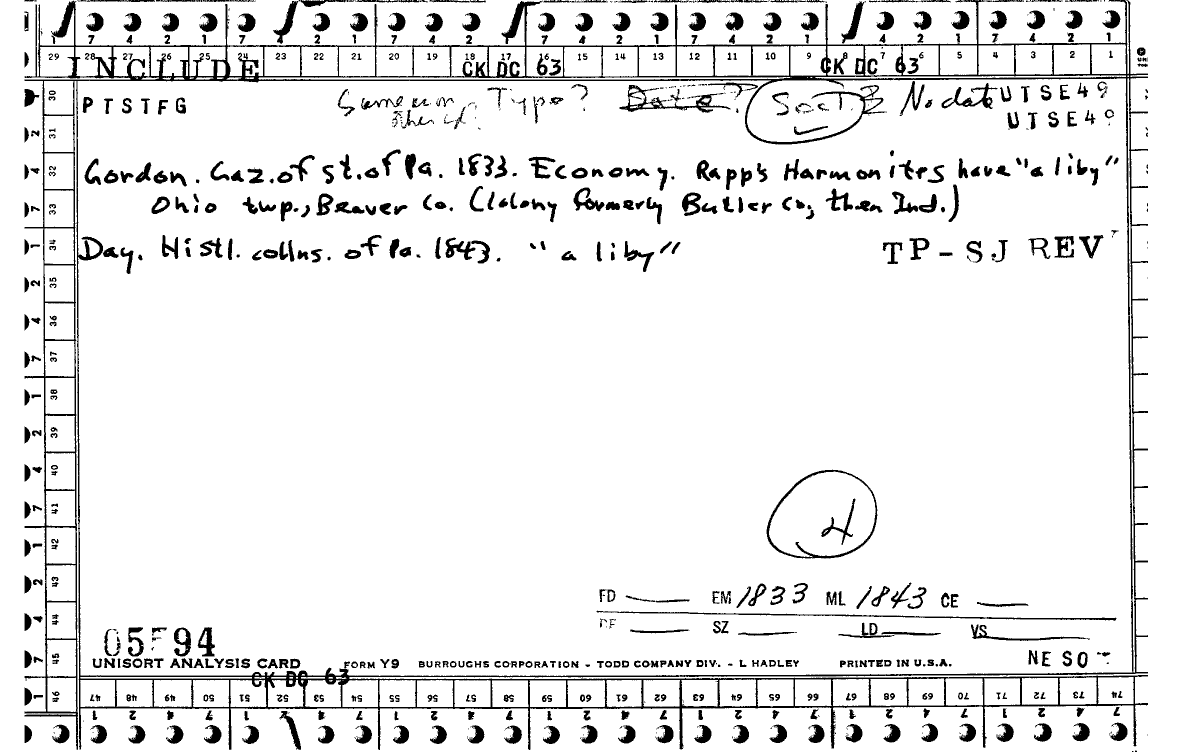 7 4 2 1 7 4 2 1 7 4 2 1 7 4 2 1 7 4 2 1 7 4 2 1 7 4 2 1
29 28 27 26 25 24 23 22 21 20 19 18 17 16 15 14 13 12 11 10 9 8 7 6 5 4 3 2 1
INCLUDE CK DC 63 CK DC 63
PTSTFG Type? Date? Soct. No date UTSE49
UTSE49
Gordon. Gaz. of St. of Pa. 1833. Economy. Rapp's Harmonites have "a liby"
Ohio twp., Beaver Co. (Colony formerly Butler Co, then Ind.)
Day. Histl. collns. of Pa. 1843. "a liby"
TP-SJ REV
30
31
32
33
34
35
36
37
38
39
40
41
42
43
44
45
46
4
FD EM 1833 ML 1843 CE
SZ LD VS
NE SO
UNISORT ANALYSIS CARD FORM Y9 BURROUGHS CORPORATION - TODD COMPANY DIV. - L HADLEY PRINTED IN U.S.A.
CK DC 63
47 48 49 50 51 52 53 54 55 56 57 58 59 60 61 62 63 64 65 66 67 68 69 70 71 72 73 74
1 2 4 7 1 2 4 7 1 2 4 7 1 2 4 7 1 2 4 7 1 2 4 7 1 2 4 7